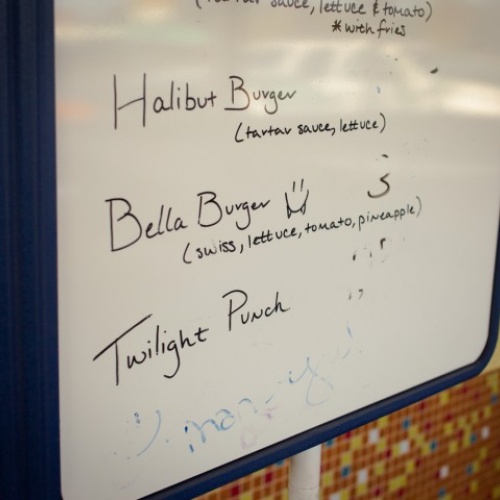 sauce, lettuce & tomato)
*with fries
Halibut Burger
(tartar sauce, lettuce)
Bella Burger
(swiss, lettuce, tomato, pineapple)
Twilight Punch